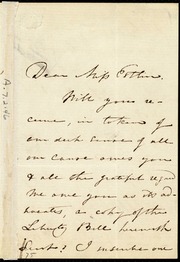 Dear Miss Estlin.
Will you re-
ceive, in token of
our deep sense of all
our Cause owes you
& all the grateful regard
we owe you as its ad-
vocates, a copy of this
Liberty Bell herewith
sent? I inscribe one